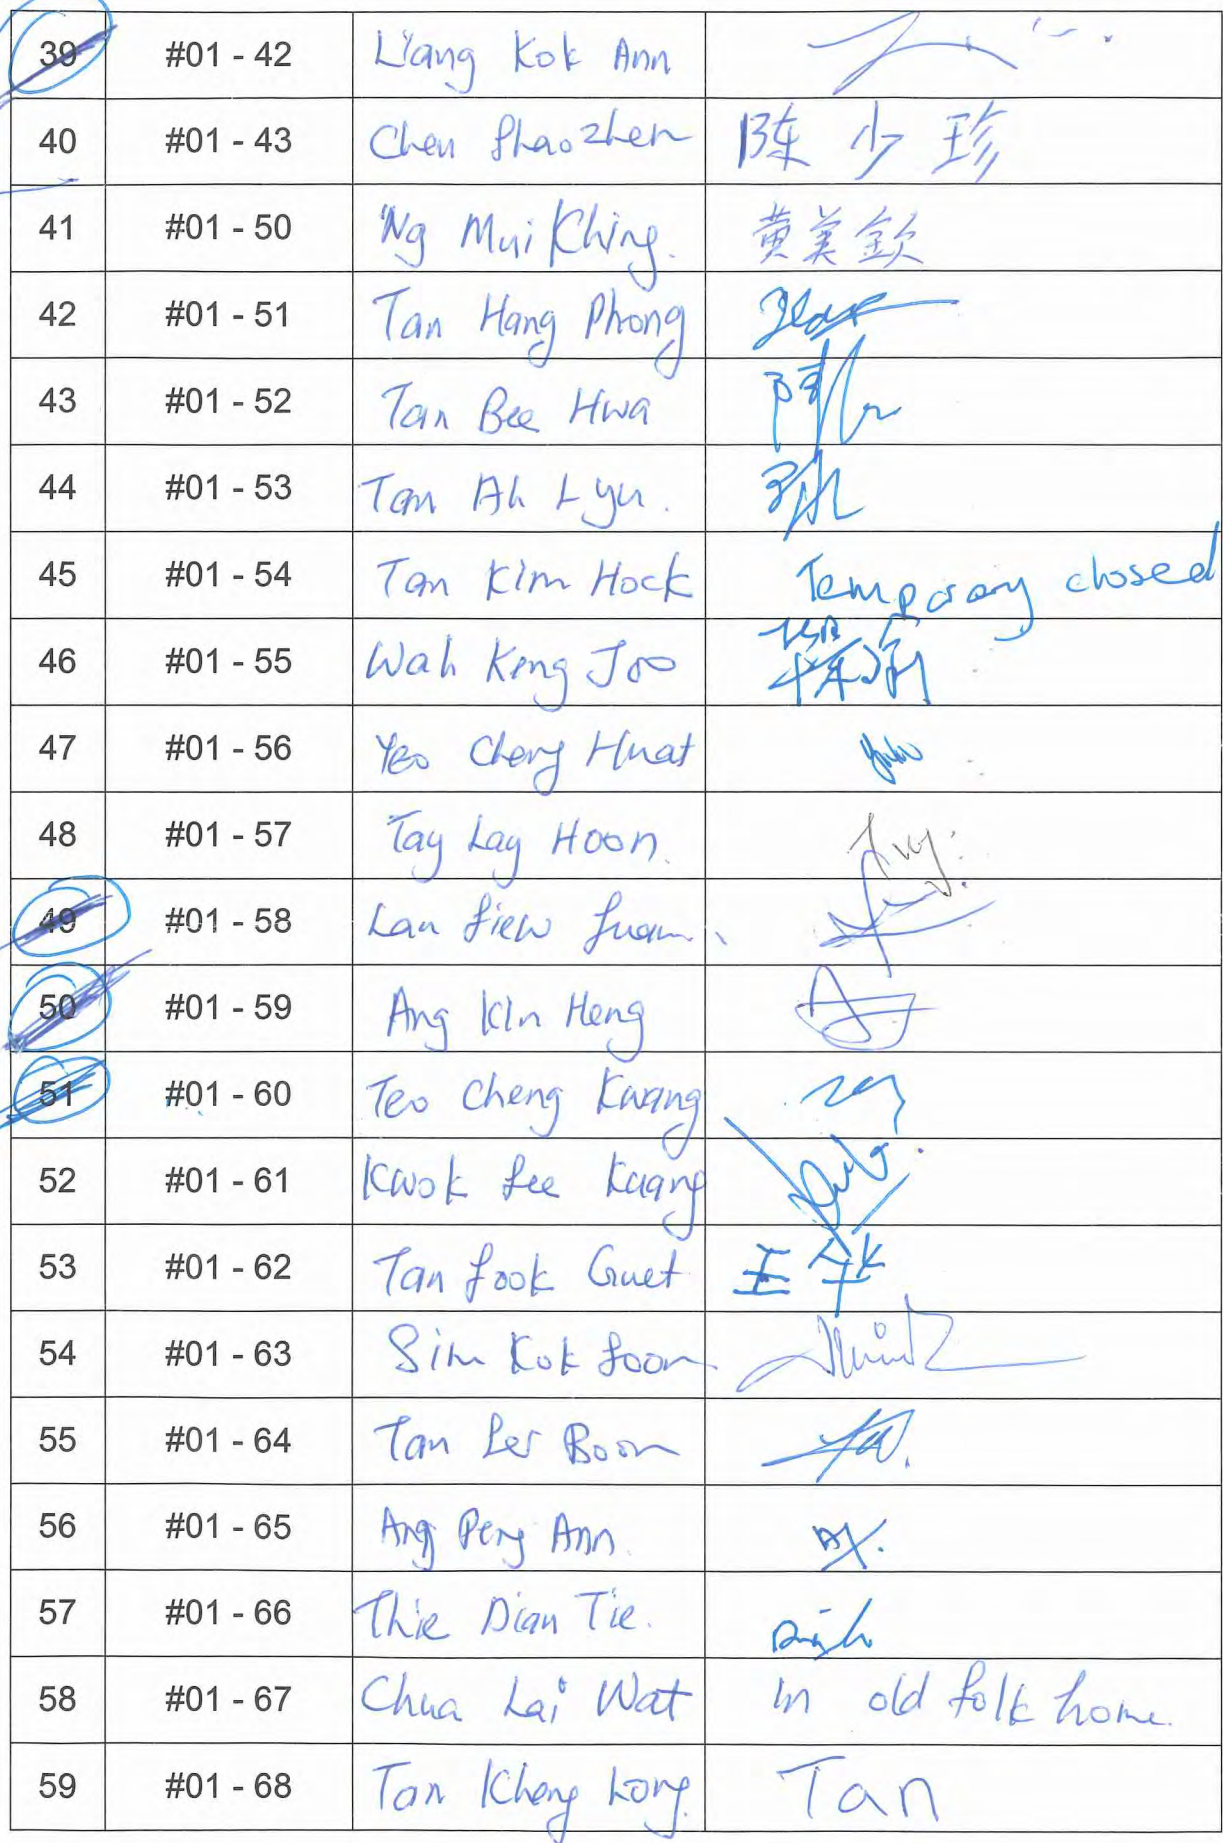 39 #01 - 42 Liang Kok Ann
40 #01 - 43 Chen Shaozhen 陈少珍
41 #01 - 50 Ng Mui Khing. 黄美钦
42 #01 - 51 Tan Hang Phong
43 #01 - 52 Tan Bee Hwa
44 #01 - 53 Tan Ah Lyu.
45 #01 - 54 Tan Kim Hock Temporary closed
46 #01 - 55 Wah Keng Joo
47 #01 - 56 Yeo Cheng Huat
48 #01 - 57 Tay Lay Hoon.
49 #01 - 58 Lau Siew
50 #01 - 59 Ang Kin Heng
51 #01 - 60 Teo Cheng Kwang
52 #01 - 61 Kwok See Kuang
53 #01 - 62 Tan Sook Guet 王
54 #01 - 63 Sim Kok Soon
55 #01 - 64 Tan Ser Boon
56 #01 - 65 Ang Peng Ann.
57 #01 - 66 Thie Dian Tie.
58 #01 - 67 Chua Lai Wat In old folk home.
59 #01 - 68 Tan Kheng Long. Tan